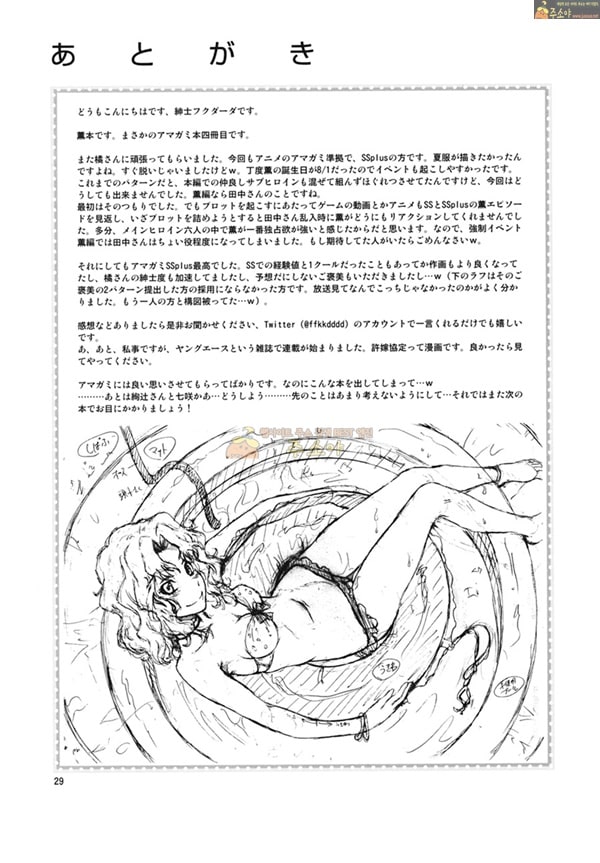 あとがき
どうもこんにちはです、紳士フクダーダです。
薫本です。まさかのアマガミ本四冊目です。
また橘さんに頑張ってもらいました。今回もアニメのアマガミ準拠で、SSplusの方です。夏服が描きたかったん
ですよね。すぐ脱いじゃいましたけどw。丁度薫の誕生日が8/1だったのでイベントも起こしやすかったです。
これまでのパターンだと、本編での仲良しサブヒロインも混ぜて組んずほぐれつさせてたんですけど、今回はど
うしても出来ませんでした。薫編なら田中さんのことですね。
最初はそのつもりでした。でもプロットを起こすにあたってゲームの動画とかアニメもSSとSSplusの薫エピソー
ドを見返し、いざプロットを詰めようとすると田中さん乱入時に薫がどうにもリアクションしてくれませんでし
た。多分、メインヒロイン六人の中で薫が一番独占欲が強いと感じたからだと思います。なので、強制イベント
薫編では田中さんはちょい役程度になってしまいました。もし期待してた人がいたらごめんなさいw。
それにしてもアマガミSSplus最高でした。SSでの経験値と1クールだったこともあってか作画もより良くなって
たし、橘さんの紳士度も加速してましたし、予想だにしないご褒美もいただきましたし…w（下のラフはそのご
褒美の2パターン提出した方の採用にならなかった方です。放送見てなんでこっちじゃなかったのかがよく分か
りました。もう一人の方と構図被ってた…w）。
感想などありましたら是非お聞かせください、Twitter（@ffkkdddd）のアカウントで一言くれるだけでも嬉しい
です。
あ、あと、私事ですが、ヤングエースという雑誌で連載が始まりました。許嫁協定って漫画です。良かったら見
てやってください。
アマガミには良い思いさせてもらってばかりです。なのにこんな本を出してしまって…w
………あとは絢辻さんと七咲かあ…どうしよう………先のことはあまり考えないようにして…それではまた次の
本でお目にかかりましょう！
しばふ
マット
29